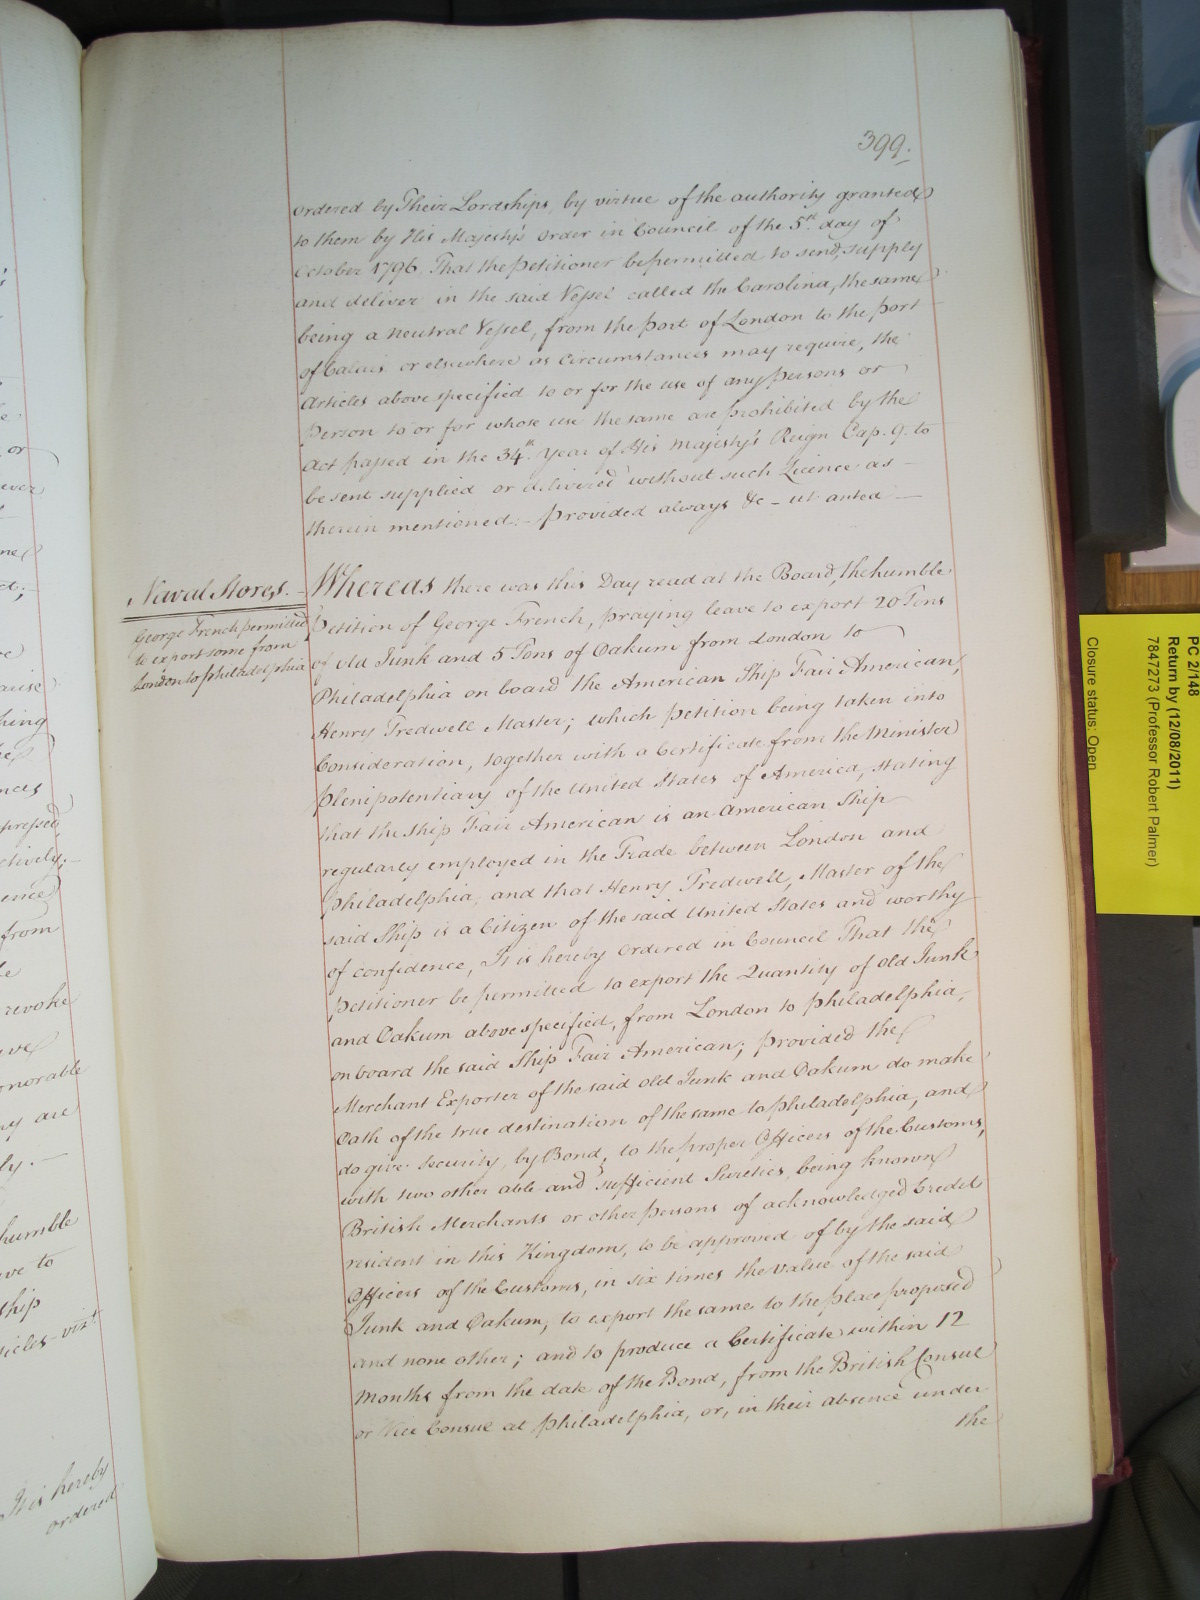 399.
ordered by Their Lordships, by virtue of the authority granted
to them by His Majesty's Order in Council of the 5th. day of
October 1796. That the Petitioner be permitted to send, supply
and deliver in the said Vessel called the Carolina, the same
being a Neutral Vessel, from the Port of London to the Port
of Calais or elsewhere as Circumstances may require, the
Articles above specified to or for the use of any Persons or
Person to or for whose use the same are prohibited by the
Act passed in the 34th. Year of His Majesty's Reign Cap. 9. to
be sent supplied or delivered without such Licence as
therein mentioned. - Provided always &c - ut antea -
Naval Stores. -
George French permitted
to export some from
London to Philadelphia
Whereas there was this Day read at the Board, the humble
Petition of George French, praying leave to export 20 Tons
of old Junk and 5 Tons of Oakum from London to
Philadelphia on board the American Ship Fair American,
Henry Tredwell Master; which Petition being taken into
Consideration, together with a Certificate from the Minister
Plenipotentiary of the United States of America, stating
that the Ship Fair American is an American Ship
regularly employed in the Trade between London and
Philadelphia, and that Henry Tredwell, Master of the
said Ship is a Citizen of the said United States and worthy
of confidence, It is hereby Ordered in Council That the
Petitioner be permitted to export the Quantity of Old Junk
and Oakum above specified, from London to Philadelphia,
on board the said Ship Fair American; provided the
Merchant Exporter of the said Old Junk and Oakum do make
Oath of the true destination of the same to Philadelphia, and
do give Security, by Bond, to the proper Officers of the Customs,
with two other able and sufficient Sureties, being known
British Merchants or other Persons of acknowledged Credit
resident in this Kingdom, to be approved of by the said
Officers of the Customs, in six times the value of the said
Junk and Oakum, to export the same to the place proposed
and none other; and to produce a Certificate within 12
Months from the date of the Bond, from the British Consul
or Vice Consul at Philadelphia, or, in their absence under
the
or
revoke
humble
ve to
ship
It is hereby
ordered
from
PC 2/148
Return by (12/08/2011)
7847273 (Professor Robert Palmer)
Closure status: Open